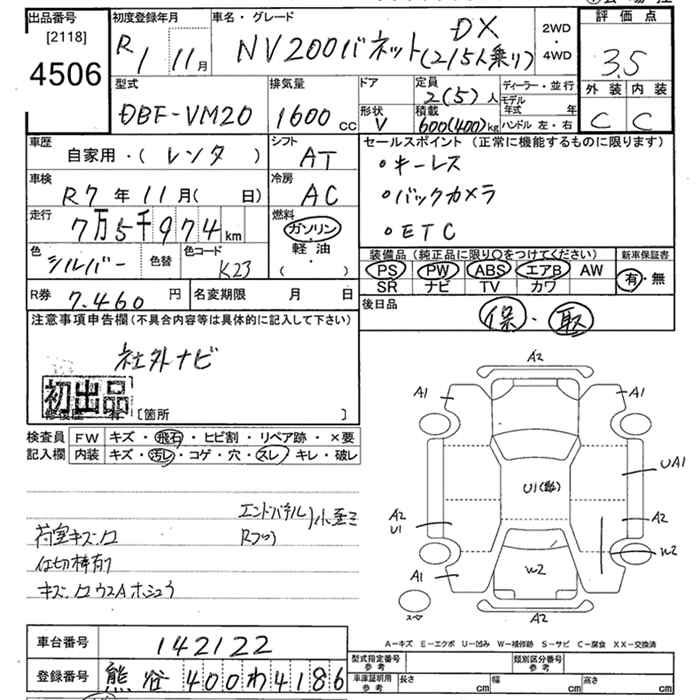 出品番号
[2118]
4506
初度登録年月
R1 11月
車名・グレード
NV200バネット DX (2/5人乗り)
2WD
・
4WD
評価点
3.5
外装 内装
C C
型式
DBF-VM20
排気量
1600 cc
ドア
形状
V
定員
2(5)人
積載
600(400)kg
ディーラー・並行
モデル年式 年
ハンドル 左・右
車歴
自家用・(レンタ)
シフト
AT
セールスポイント (正常に機能するものに限ります)
・キーレス
・バックカメラ
・ETC
車検
R7年11月( 日)
冷房
AC
走行
7万5千974km
燃料
ガソリン
・
軽油
・
( )
色
シルバー
色替
色コード
K23
装備品 (純正品に限り○をつけてください)
PS PW ABS エアB AW
SR ナビ TV カワ
新車保証書
有・無
R券
7.460円
名変期限 月 日
後日品
保・取
注意事項申告欄(不具合内容等は具体的に記入して下さい)
社外ナビ
初出品
[箇所 ]
検査員
記入欄
FW キズ・飛石・ヒビ割・リペア跡・×要
内装 キズ・汚レ・コゲ・穴・スレ・キレ・破レ
エンドパネル小歪ミ
荷室キズ・凹 Rフロ
仕切棒有り
キズ・凹ウスAホシュウ
A2
A1
A1
U1
UA1
A2
U1
A2
W2
W2
A1
A2
スペア
A-キズ E-エクボ U-凹み W-補修跡 S-サビ C-腐食 XX-交換済
車台番号
142122
登録番号
熊谷400わ4186
型式指定番号
参考
類別区分番号
参考
車庫証明用
参考
長さ cm 幅 cm 高さ cm